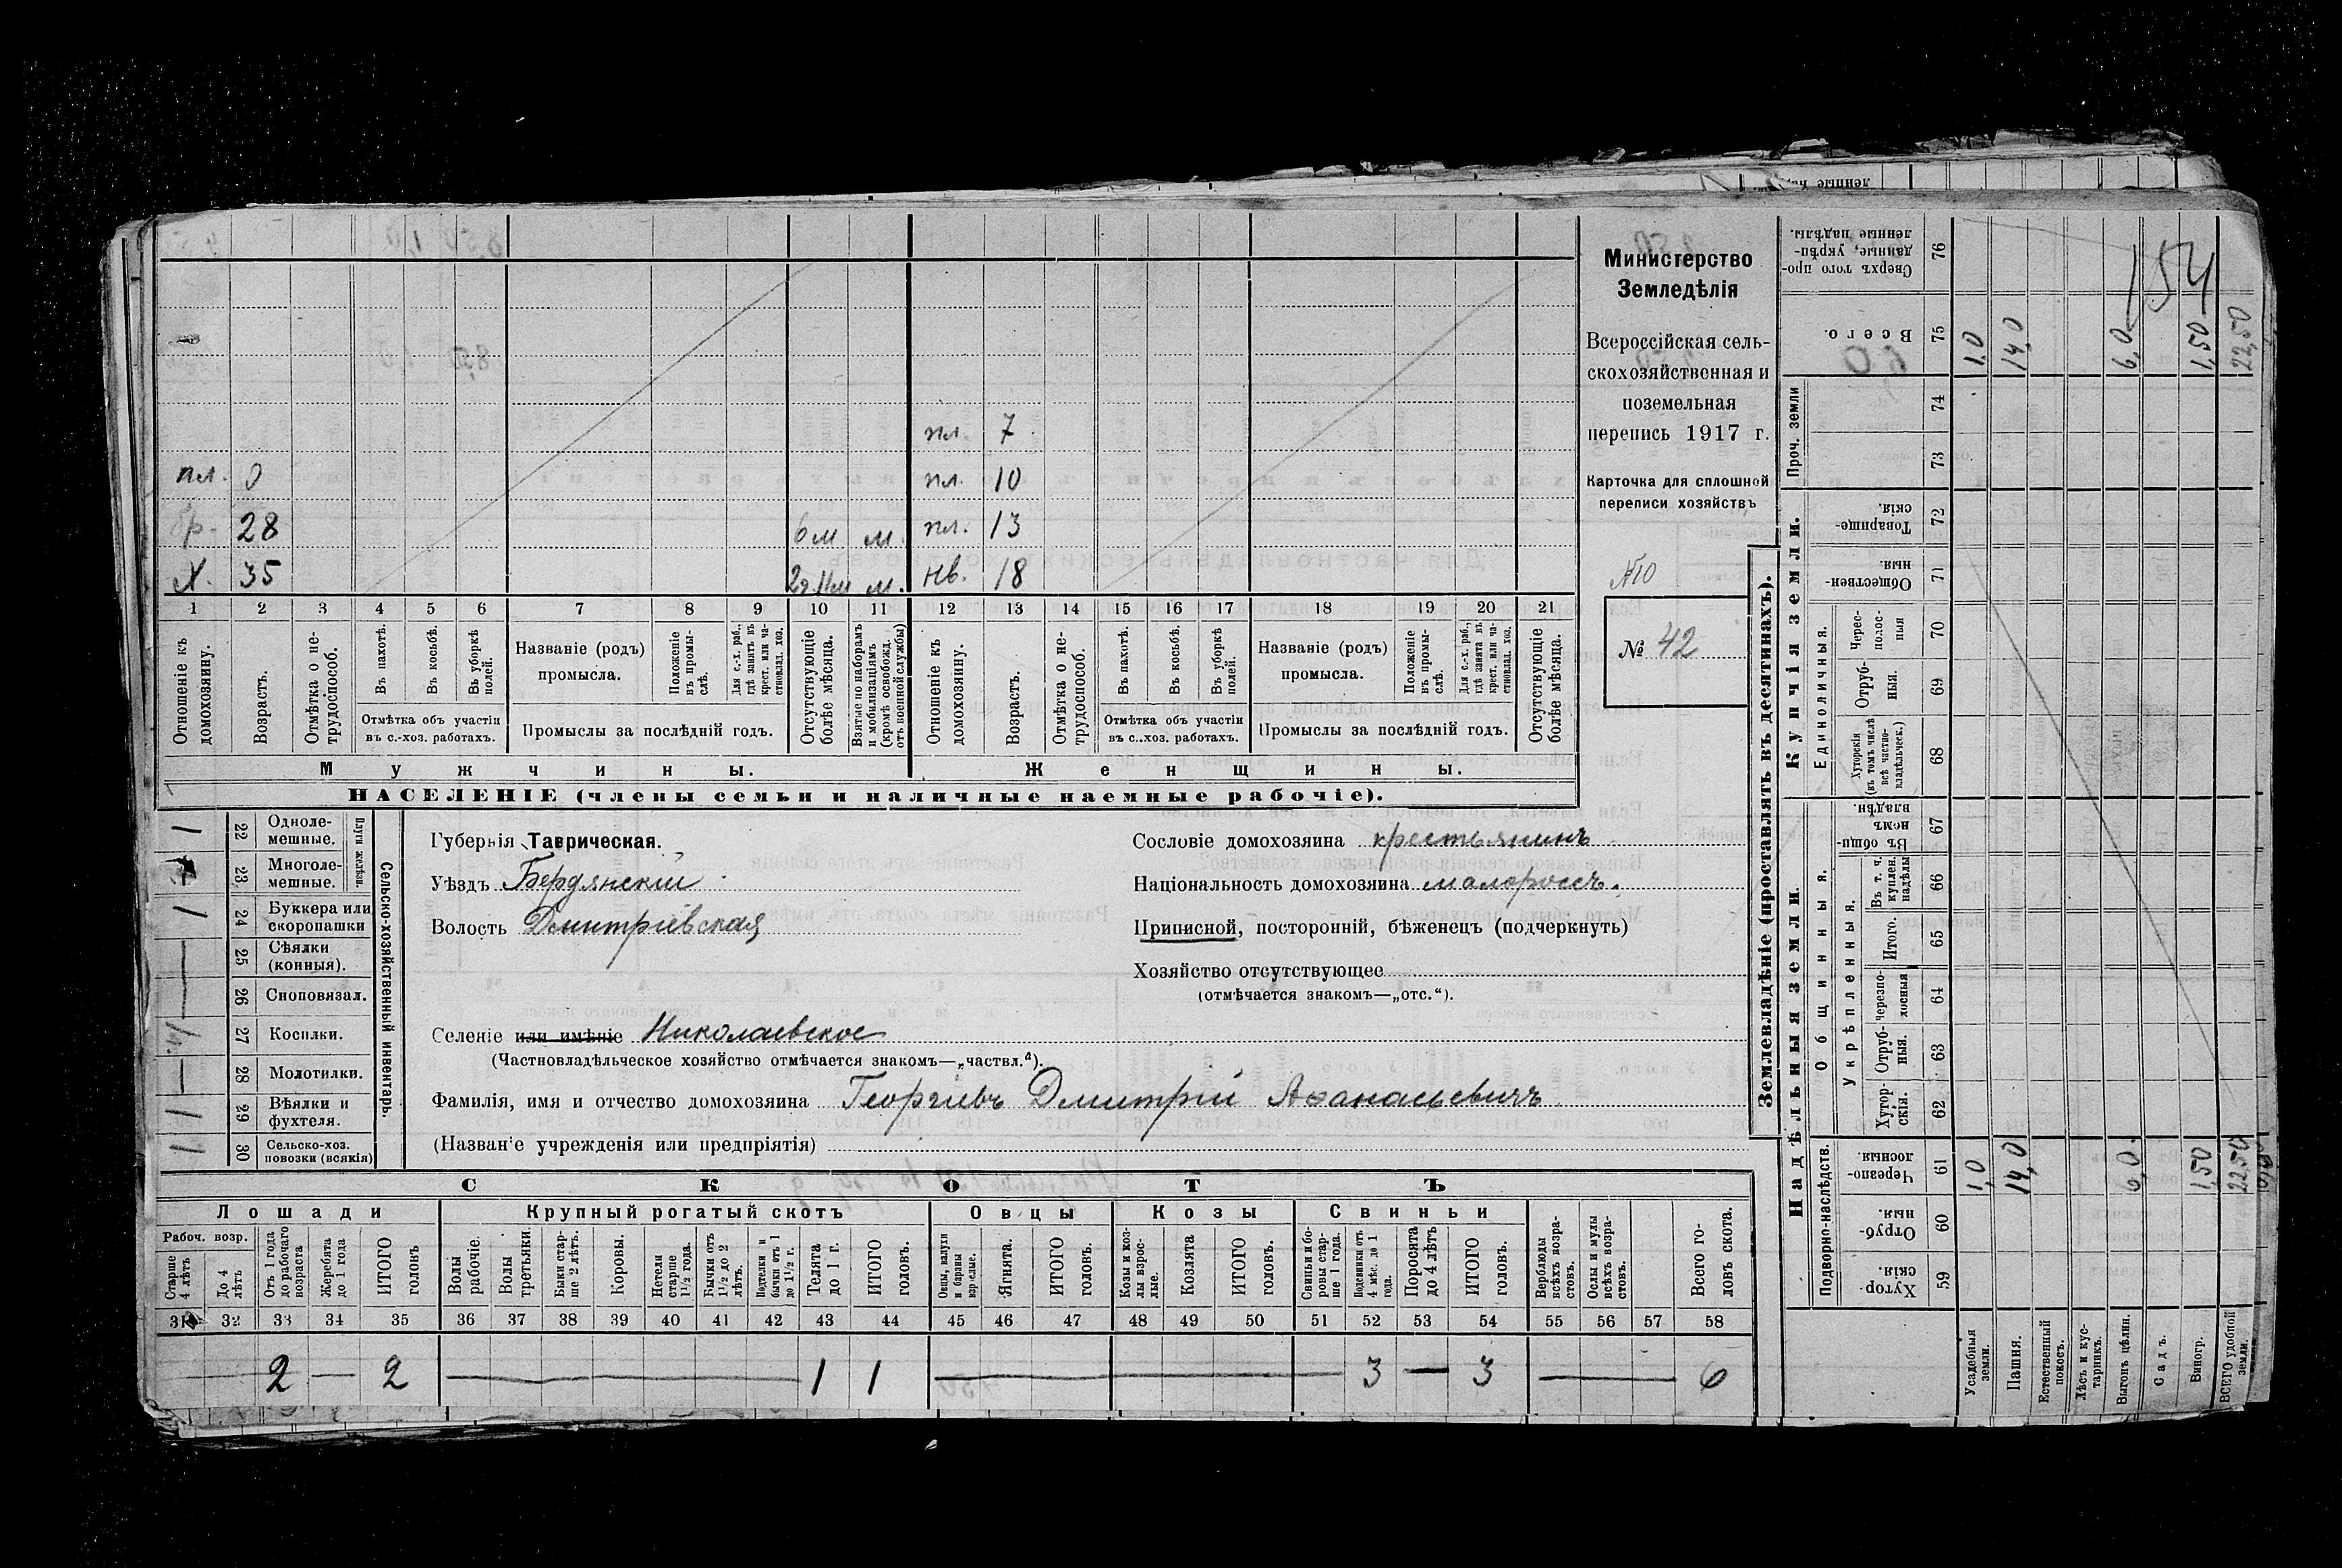 ленные на
Министерство
Земледѣлія
Всероссійская сель-
скохозяйственная и
поземельная
перепись 1917 г.
Карточка для сплошной
переписи хозяйствъ
№10
№ 42
пл. 7
пл. 0 пл. 10
бр. 28 6 м м. пл. 13
х. 35 м. нв. 18
1 2 3 4 5 6 7 8 9 10 11 12 13 14 15 16 17 18 19 20 21
Отношеніе къ домохозяину.
Возрастъ.
Отмѣтка о не-трудоспособ.
Въ пахотѣ.
Въ косьбѣ.
Въ уборкѣ полей.
Отмѣтка объ участіи въ с.-хоз. работахъ.
Названіе (родъ) промысла.
Положеніе въ промы-слѣ.
Для с.-х. раб., гдѣ занятъ въ крест. или ча-стновлад. хоз.
Промыслы за послѣдній годъ.
Отсутствующіе болѣе мѣсяца.
Взятые по наборамъ и мобилизаціямъ (кромѣ освобожд. отъ военной службы)
Отношеніе къ домохозяину.
Возрастъ.
Отмѣтка о не-трудоспособ.
Въ пахотѣ.
Въ косьбѣ.
Въ уборкѣ полей.
Отмѣтка объ участіи въ с..хоз. работахъ.
Названіе (родъ) промысла.
Положеніе въ промы-слѣ.
Для с.-х. раб., гдѣ занята въ крест. или ча-стновлад. хоз.
Промыслы за послѣдній годъ.
Отсутствующіе болѣе мѣсяца.
Мужчины. Женщины.
НАСЕЛЕНІЕ (члены семьи и наличные наемные рабочіе).
Сельско-хозяйственный инвентарь.
Плуги желѣзн.
1 22 Одноле-мешные.
23 Многоле-мешные.
1 24 Буккера или скоропашки
— 25 Сѣялки (конныя).
— 26 Сноповязал.
27 Косилки.
— 28 Молотилки.
1 29 Вѣялки и фухтеля.
1 30 Сельско-хоз. повозки (всякія)
Губернія Таврическая.
Уѣздъ Бердянскій
Волость Дмитріевская
Сословіе домохозяина крестьянинъ
Національность домохозяина малороссъ.
Приписной, посторонній, бѣженецъ (подчеркнуть)
Хозяйство отсутствующее
(отмѣчается знакомъ—„отс.“).
Селеніе или имѣніе Николаевское
(Частновладѣльческое хозяйство отмѣчается знакомъ—„частвл.“).
Фамилія, имя и отчество домохозяина Георгіевъ Дмитрій Аѳанасьевичъ
(Названіе учрежденія или предпріятія)
СКОТЪ
Лошади Крупный рогатый скотъ Овцы Козы Свиньи
Рабоч. возр.
Старше 4 лѣтъ
До 4 лѣтъ
Отъ 1 года до рабочаго возраста
Жеребята до 1 года
ИТОГО головъ
Волы рабочіе.
Волы третьяки.
Быки стар-ше 2 лѣтъ.
Коровы.
Нетели старше 1½ года.
Бычки отъ 1½ до 2 лѣтъ.
Подтелки и бычки отъ 1 до 1½ г.
Телята до 1 г.
ИТОГО головъ.
Овцы, валухи и бараны взрослые.
Ягнята.
ИТОГО головъ.
Козы и коз-лы взрос-лые.
Козлята
ИТОГО головъ.
Свиньи и бо-ровы стар-ше 1 года.
Подсвинки отъ 4 мѣс. до 1 года.
Поросята до 4 лѣтъ
ИТОГО головъ.
Верблюды всѣхъ возра-стовъ.
Ослы и мулы всѣхъ возра-стовъ.
Всего го-ловъ скота.
31 32 33 34 35 36 37 38 39 40 41 42 43 44 45 46 47 48 49 50 51 52 53 54 55 56 57 58
2 — 2 — 1 1 — 3 — 3 — 6
Землевладѣніе (проставлять въ десятинахъ).
Надѣльныя земли. Купчія земли. Проч. земли
Подворно-наслѣдств. Общинныя. Единоличныя.
Укрѣпленныя.
59 Хутор-скія.
60 Отруб-ныя.
61 Черезпо-лосныя
62 Хутор-скія.
63 Отруб-ныя.
64 черезпо-лосныя
65 Итого.
66 Въ т. ч. куплен. надѣлы
67 Въ общи-номъ владѣн.
68 Хуторскія (въ томъ числѣ всѣ частно-владѣльческ.)
69 Отруб-ныя.
70 Черес-полос-ныя
71 Обществен-ныя.
72 Товарище-скія.
73
74
75 Всего.
76 Сверхъ того про-данные, укрѣп-ленные надѣлы.
Усадебныя земли. 1,0 1,0
Пашня. 14,0 14,0
Естественный покосъ.
Лѣсъ и кус-тарникъ.
Выгонъ цѣлин. 6,0 6,0
Садъ.
Виногр. 1,50 1,50
ВСЕГО удобной земли. 22,50 22,50
154